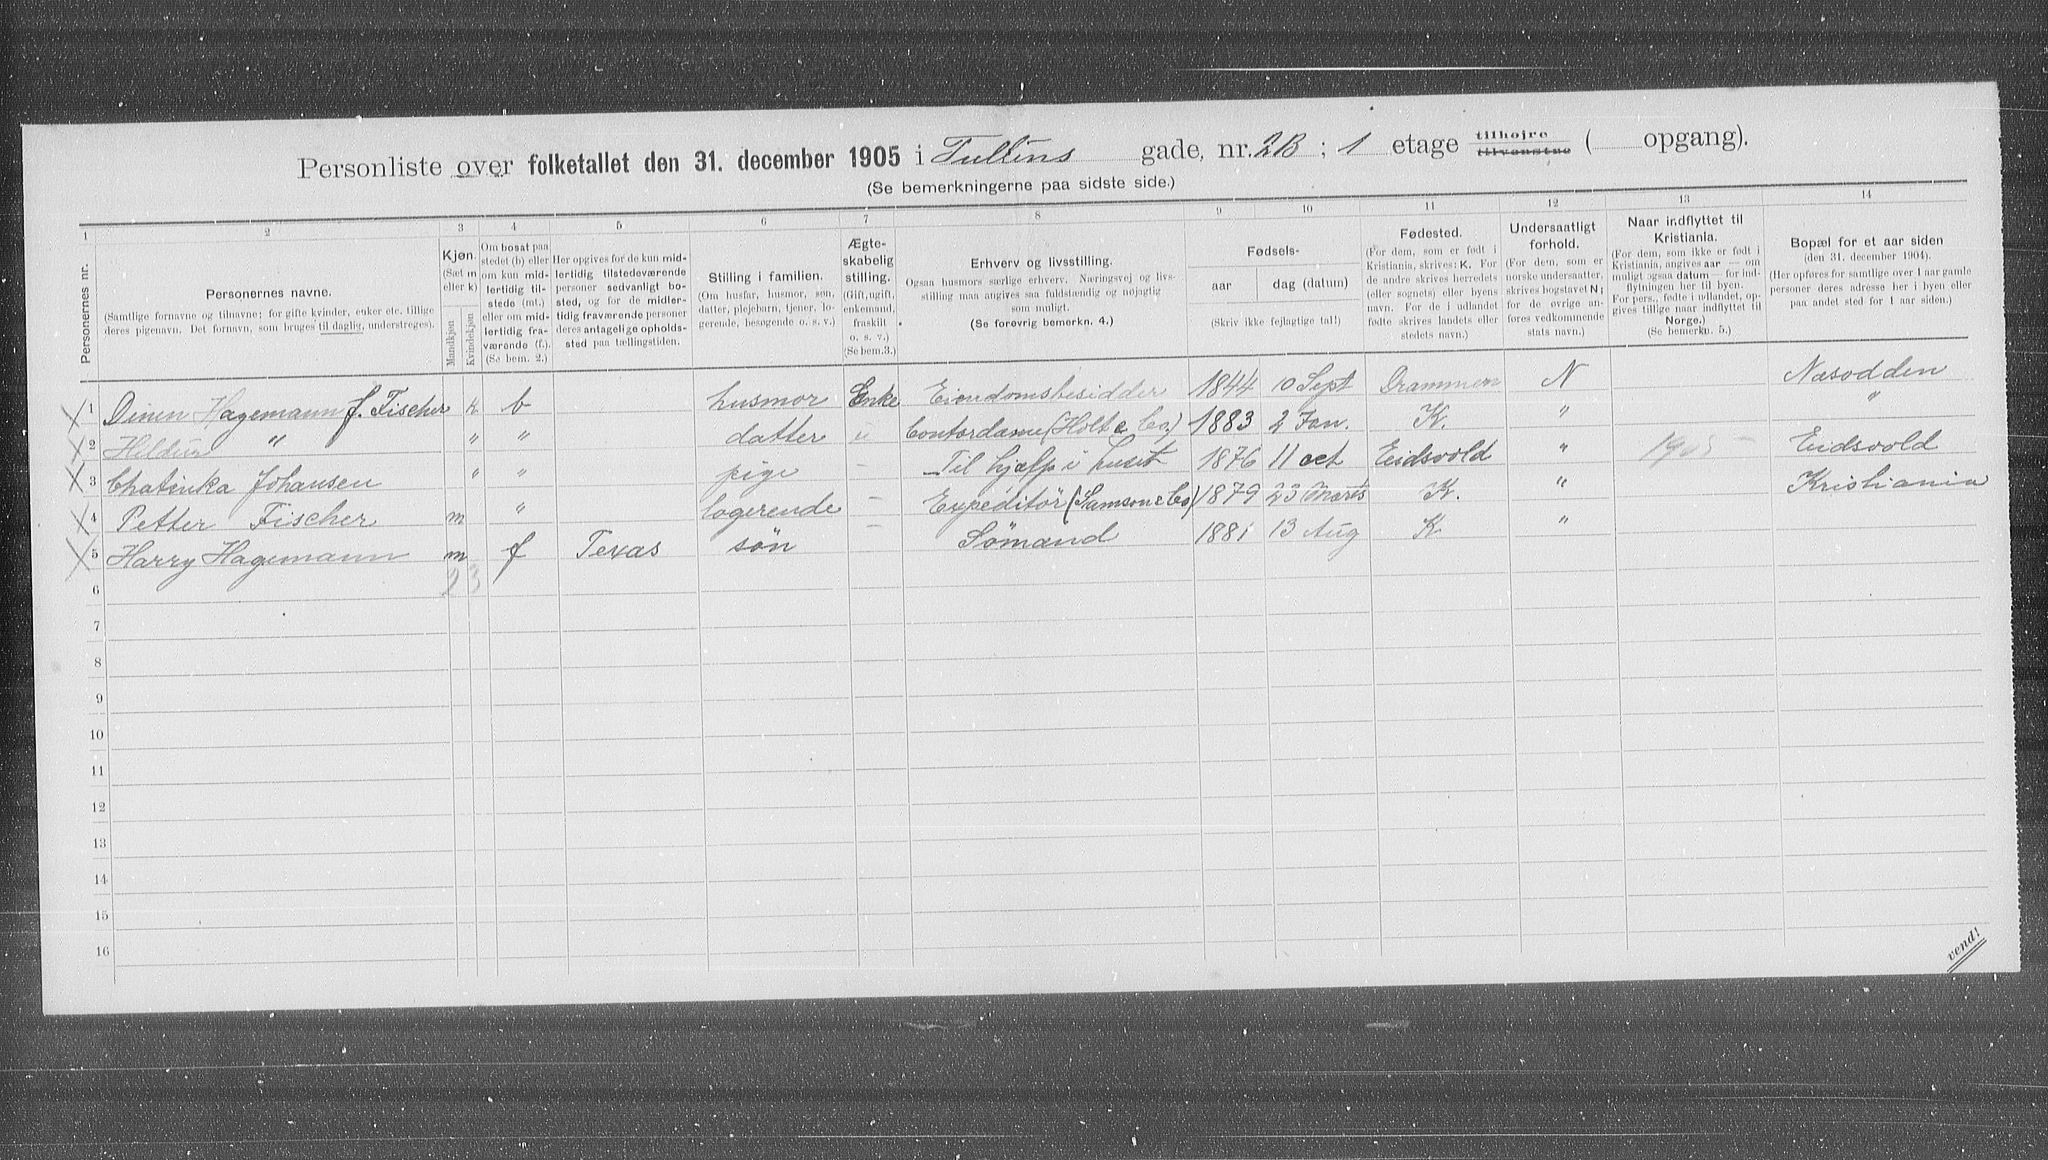 Personliste over folketallet den 31. december 1905 i Tullins gade, nr. 2B ; 1 etage tilhøjre tilvenstre ( opgang).
(Se bemerkningerne paa sidste side.)
1 2 3 4 5 6 7 8 9 10 11 12 13 14
Personernes nr.
Personernes navne.
(Samtlige fornavne og tilnavne; for gifte kvinder, enker etc. tillige deres pigenavn. Det fornavn, som bruges til daglig, understreges).
Kjøn.
(Sæt m eller k)
Mandkjøn
Kvindekjøn
Om bosat paa stedet (b) eller om kun midlertidig tilstede (mt.) eller om midlertidig fraværende (f.). (Se bem. 2.)
Her opgives for de kun midlertidig tilstedeværende personer sedvanligt bosted, og for de midlertidig fraværende personer deres antagelige opholdssted paa tællingstiden.
Stilling i familien.
(Om husfar, husmor, søn, datter, plejebarn, tjener, logerende, besøgende o. s. v.)
Ægteskabelig stilling.
(Gift, ugift, enkemand, fraskilt o. s. v.) (Se bem. 3.)
Erhverv og livsstilling.
Ogsaa husmors særlige erhverv. Næringsvej og livsstilling maa angives saa fuldstændig og nøjagtig som muligt.
(Se forøvrig bemerkn. 4.)
Fødsels-
aar dag (datum)
(Skriv ikke fejlagtige tal!)
Fødested.
(For dem, som er født i Kristiania, skrives: K. For de andre skrives herredets (eller sognets) eller byens navn. For de i udlandet fødte skrives landets eller stedets navn.)
Undersaatligt forhold.
(For dem, som er norske undersaatter, skrives bogstavet N; for de øvrige anføres vedkommende stats navn.)
Naar indflyttet til Kristiania.
(For dem, som ikke er født i Kristiania, angives aar — om muligt ogsaa datum — for indflytningen her til byen. For pers., fødte i udlandet, opgives tillige naar indflyttet til Norge.) (Se bemerkn. 5.)
Bopæl for et aar siden
(den 31. december 1904).
(Her opføres for samtlige over 1 aar gamle personer deres adresse her i byen eller paa andet sted for 1 aar siden.)
1 Hagemann f. Fischer k b husmor Enke Eiendomsbesidder 1844 10 Sept Drammen N Næsodden
2 Hildur " " " datter Contordame (Holt & Co.) 1883 2 Jan. K. " "
3 Chatinka Johansen " " pige – Til hjælp i huset 1876 11 oct Eidsvold " 1905 Eidsvold
4 Petter Fischer m " logerende – Expeditør (Samson & Co) 1879 23 Marts K. " Kristiania
5 Harry Hagemann m f Texas søn – Sømand 1881 13 Aug K "
6 2 3
7
8
9
10
11
12
13
14
15
16
vend!